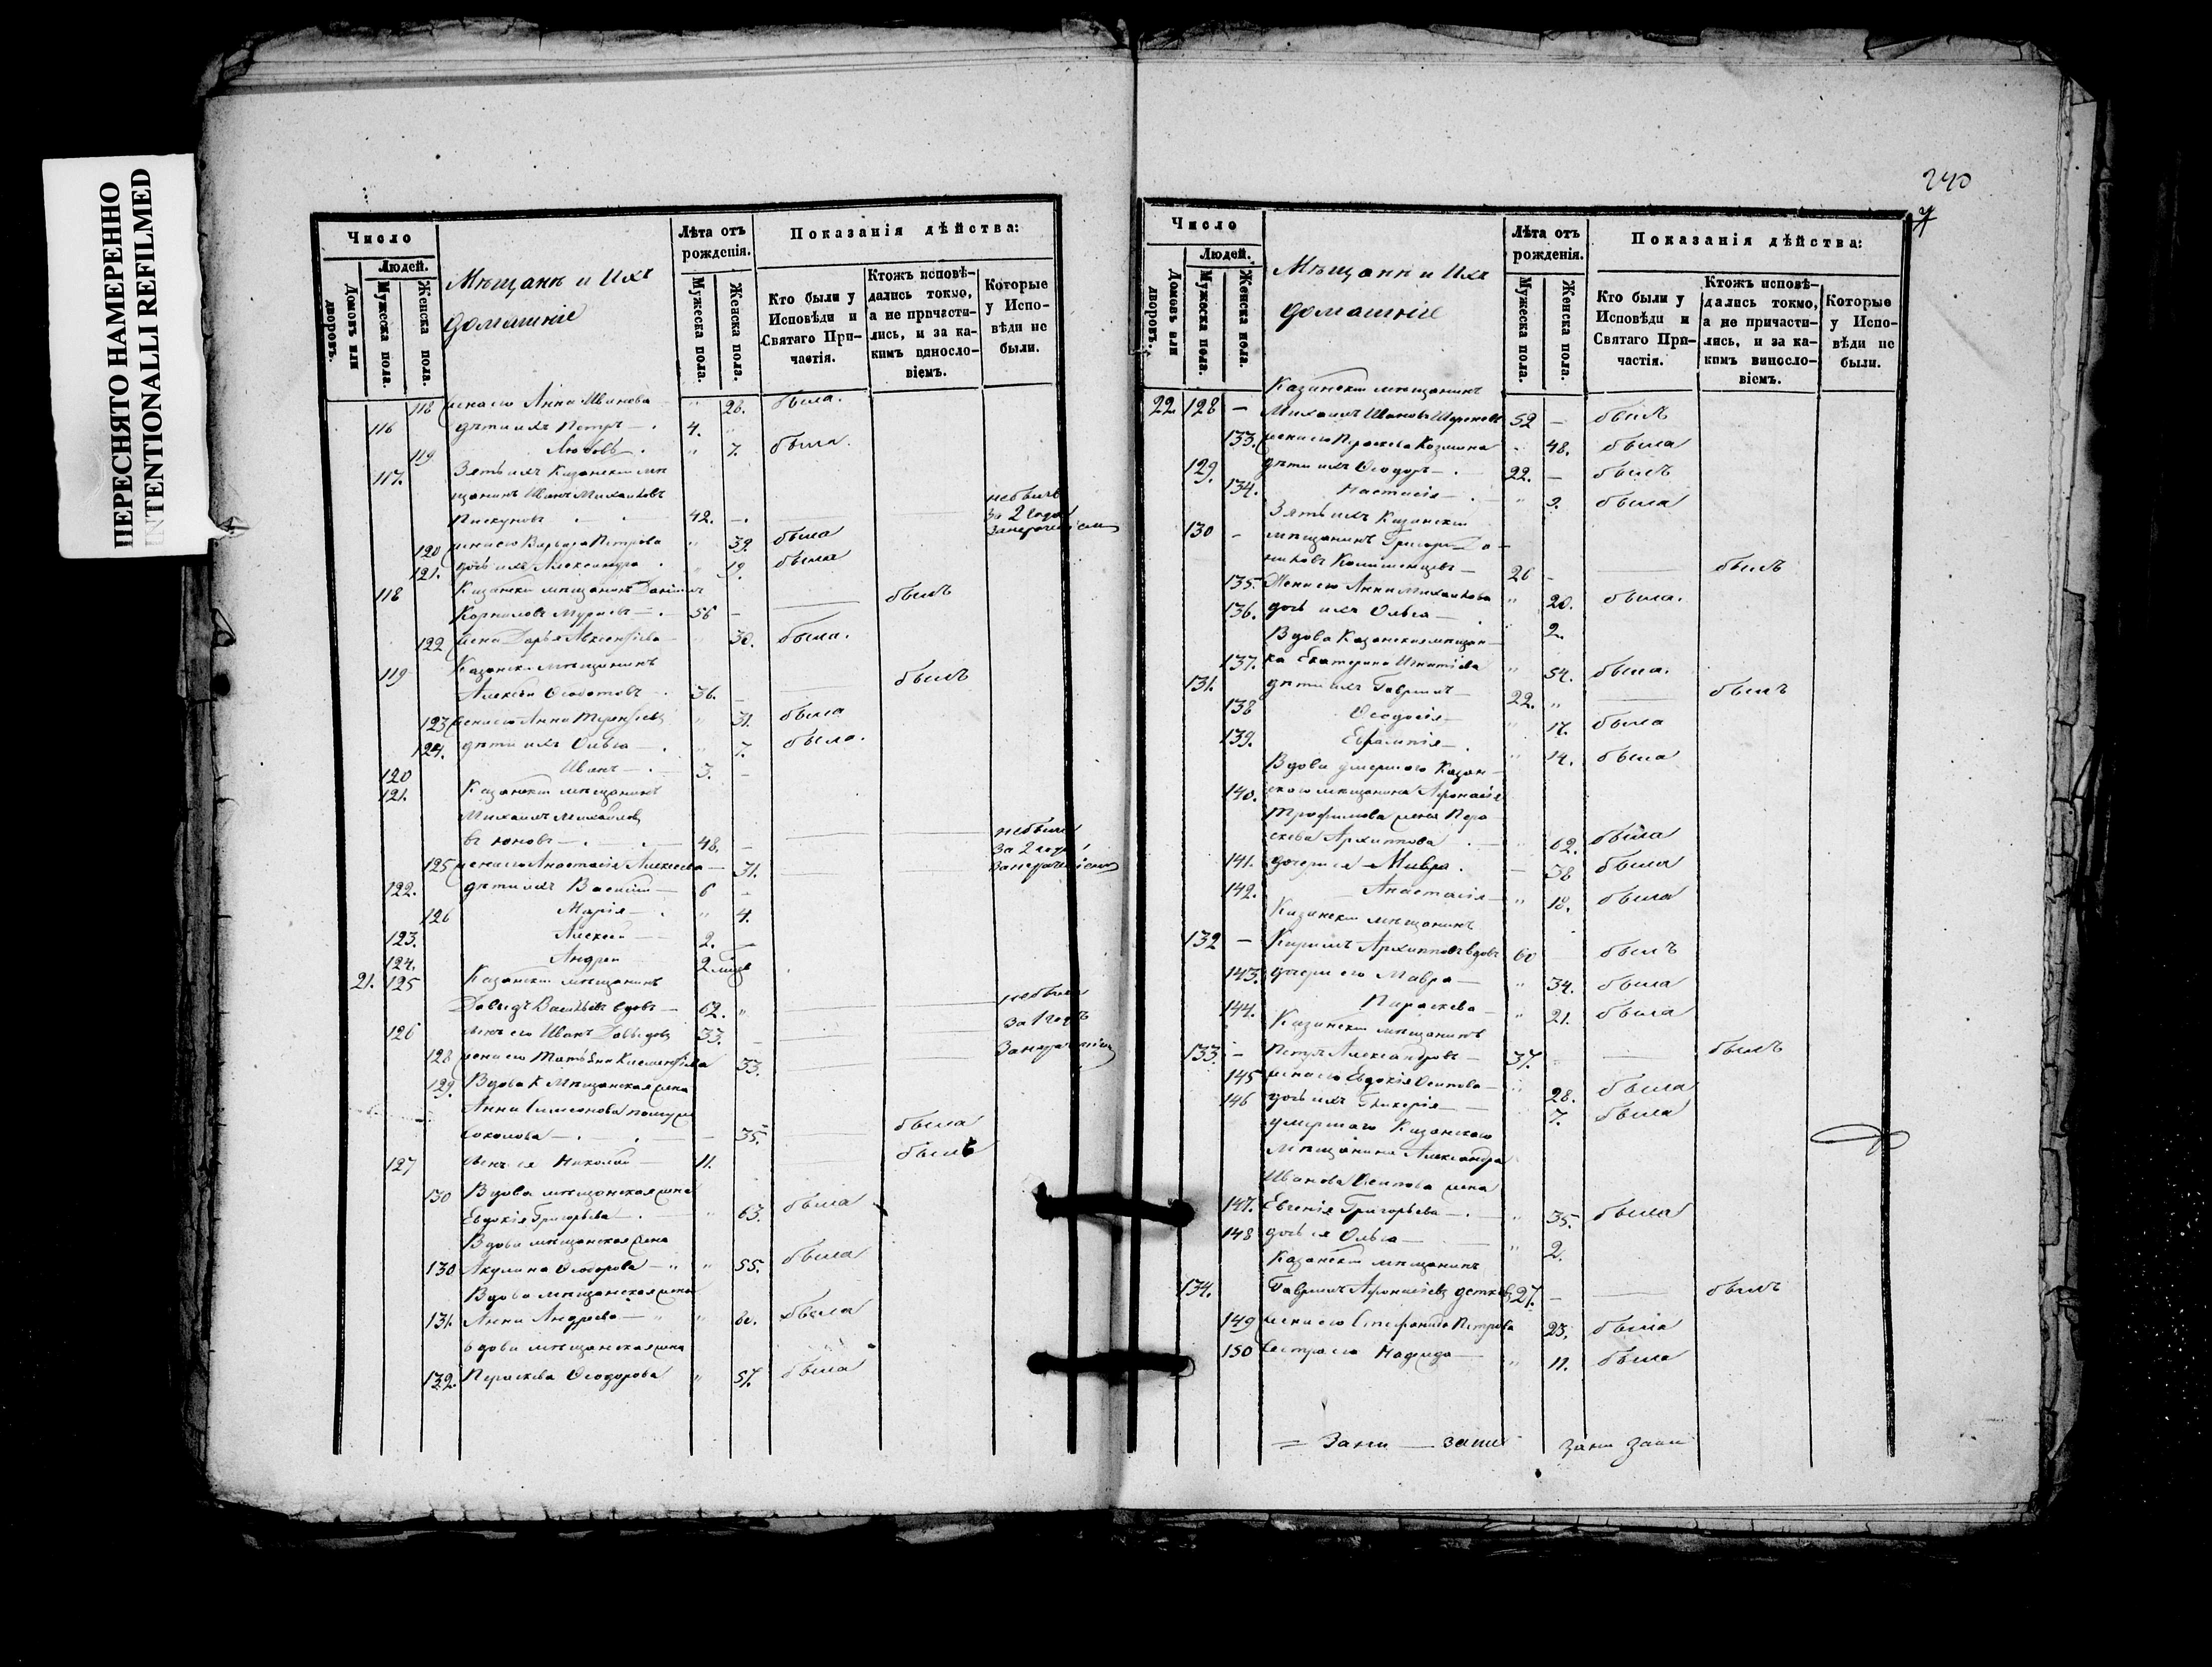 ПЕРЕСНЯТО НАМЕРЕННО
INTENTIONALLI REFILMED
Число
Людей.
Домовъ или дворовъ.
Мужеска пола.
Женска пола.
Мѣщанъ и Ихъ
домашніе
Лѣта отъ
рожденія.
Мужеска пола.
Женска пола.
Показанія дѣйства:
Кто были у
Исповѣди и
Святаго При-
частія.
Ктожъ исповѣ-
дались токмо,
а не причасти-
лись, и за ка-
кимъ винносло-
віемъ.
Которые
у Испо-
вѣди не
были.
118 жена его Анна Иванова " 28. была.
116 дѣти ихъ Петръ 4.
119 Любовь " 7. была.
117. Зять ихъ Казанскій мѣ
щанинъ Иванъ Михайловъ небылъ
42. за 2 года
120 жена его Варвара Петрова " 39. была
121. дочь ихъ Александра " 19. была
118 Казанскій мѣщанинъ Даніилъ
56 былъ
122 жена Дарья 30. была.
119 Казанскій мѣщанинъ
Алексѣй 36. былъ
123 жена его Анна " 31. была
124. дѣти ихъ Ольга " 7. была.
120 Иванъ 3.
121. Казанскій мѣщанинъ
Михаилъ Михайловъ
48. небылъ
125 жена его Анастасія Алексѣева 31. за 2 года
122. дѣти ихъ Василій 6
126 Марія " 4.
123. Алексѣй 2.
124. Андрей
21. 125 Казанскій мѣщанинъ
Давыдъ Васильевъ вдовъ 62. " небылъ
126 сынъ его Иванъ Давыдовъ 33. за 1 годъ
128 жена его Татьяна 33.
129. Вдова К. Мѣщанская жена
Анна Симеонова
Соколова 35. была
127 сынъ ея Николай 11. былъ
130 Вдова мѣщанская жена
Евдокія Григорьева " 63. была
Вдова мѣщанская жена
130 Акулина Ѳеодорова " 55. была
Вдова мѣщанская жена
131. Анна Андреева " 60. была
вдова мѣщанская жена
132. Параскева Ѳеодорова " 57. была
240
Число
Людей.
Домовъ или дворовъ.
Мужеска пола.
Женска пола.
Мѣщанъ и Ихъ
домашніе
Лѣта отъ
рожденія.
Мужеска пола.
Женска пола.
Показанія дѣйства:
Кто были у
Исповѣди и
Святаго При-
частія.
Ктожъ исповѣ-
дались токмо,
а не причасти-
лись, и за ка-
кимъ винносло-
віемъ.
Которые
у Испо-
вѣди не
были.
Казанскій мѣщанинъ
22 128 Михаилъ Ивановъ 52 былъ
133. жена его Параскева Козмина 48. была
129. дѣти ихъ Ѳеодоръ 22. былъ
134. Настасія " 9. была
Зять ихъ Казанскій
130 мѣщанинъ Григорій
26 былъ
135. Жена его Анна Михайлова " 20. была.
136. дочь ихъ Ольга " 2.
Вдова Казанская мѣщан-
137. ка Екатерина Игнатіева " 54. была.
131. дѣти ихъ Гавріилъ 22. " былъ
138 Ѳеодосія " 17. была
139. Евлампія " 14. была
Вдова умершаго Казан-
140. скаго мѣщанина Аѳонасія
Трофимова жена Пара
скева Архипова 62. была
141. дочери ея Мавра 38 была
142. Анастасія " 18. была
Казанскій мѣщанинъ
132 Кирилъ Архиповъ вдовъ 60 былъ
143. дочери его Мавра " 34. была
144. Параскева " 21. была
Казанскій мѣщанинъ
133. Петръ Александровъ 37. былъ
145 жена его Евдокія Осипова " 28. была
146 дочь ихъ Гликерія 7. была
умершаго Казанскаго
мѣщанина Александра
Иванова Осипова жена
147. Евгенія Григорьева " 35. была
148 дочь ея Ольга " 2.
Казанскій мѣщанинъ
134. Гавріилъ Аѳонасіевъ 27. былъ
149 жена его Стефанида Петрова 23. была
150 сестра его Надежда " 11. была